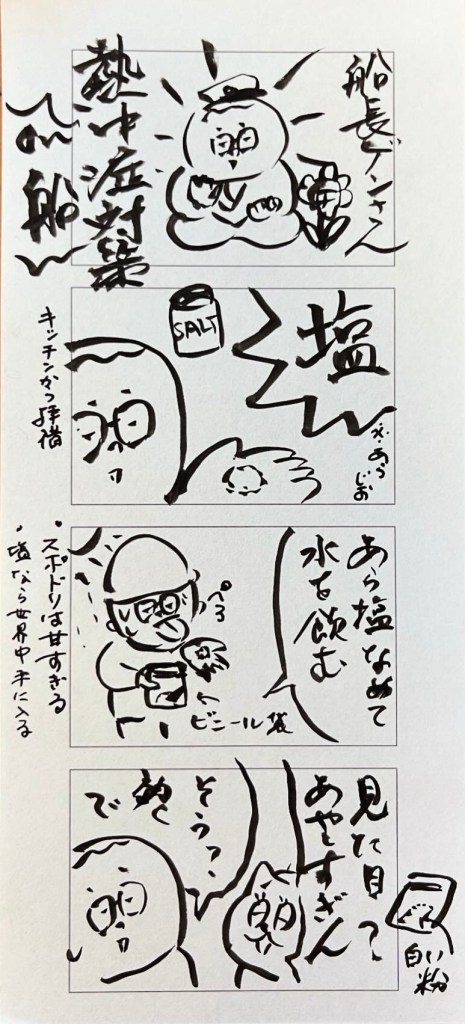 船長ゲンさん
熱中症対策
in 船
塩
※あら
じお
SALT
キッチンから拝借
あら塩なめて
水を飲む
ぺろ
←ビニール袋
・スポドリは甘すぎる
・塩なら世界中手に入る
見た目が
あやしすぎん
そう?
効く
で
白い
粉